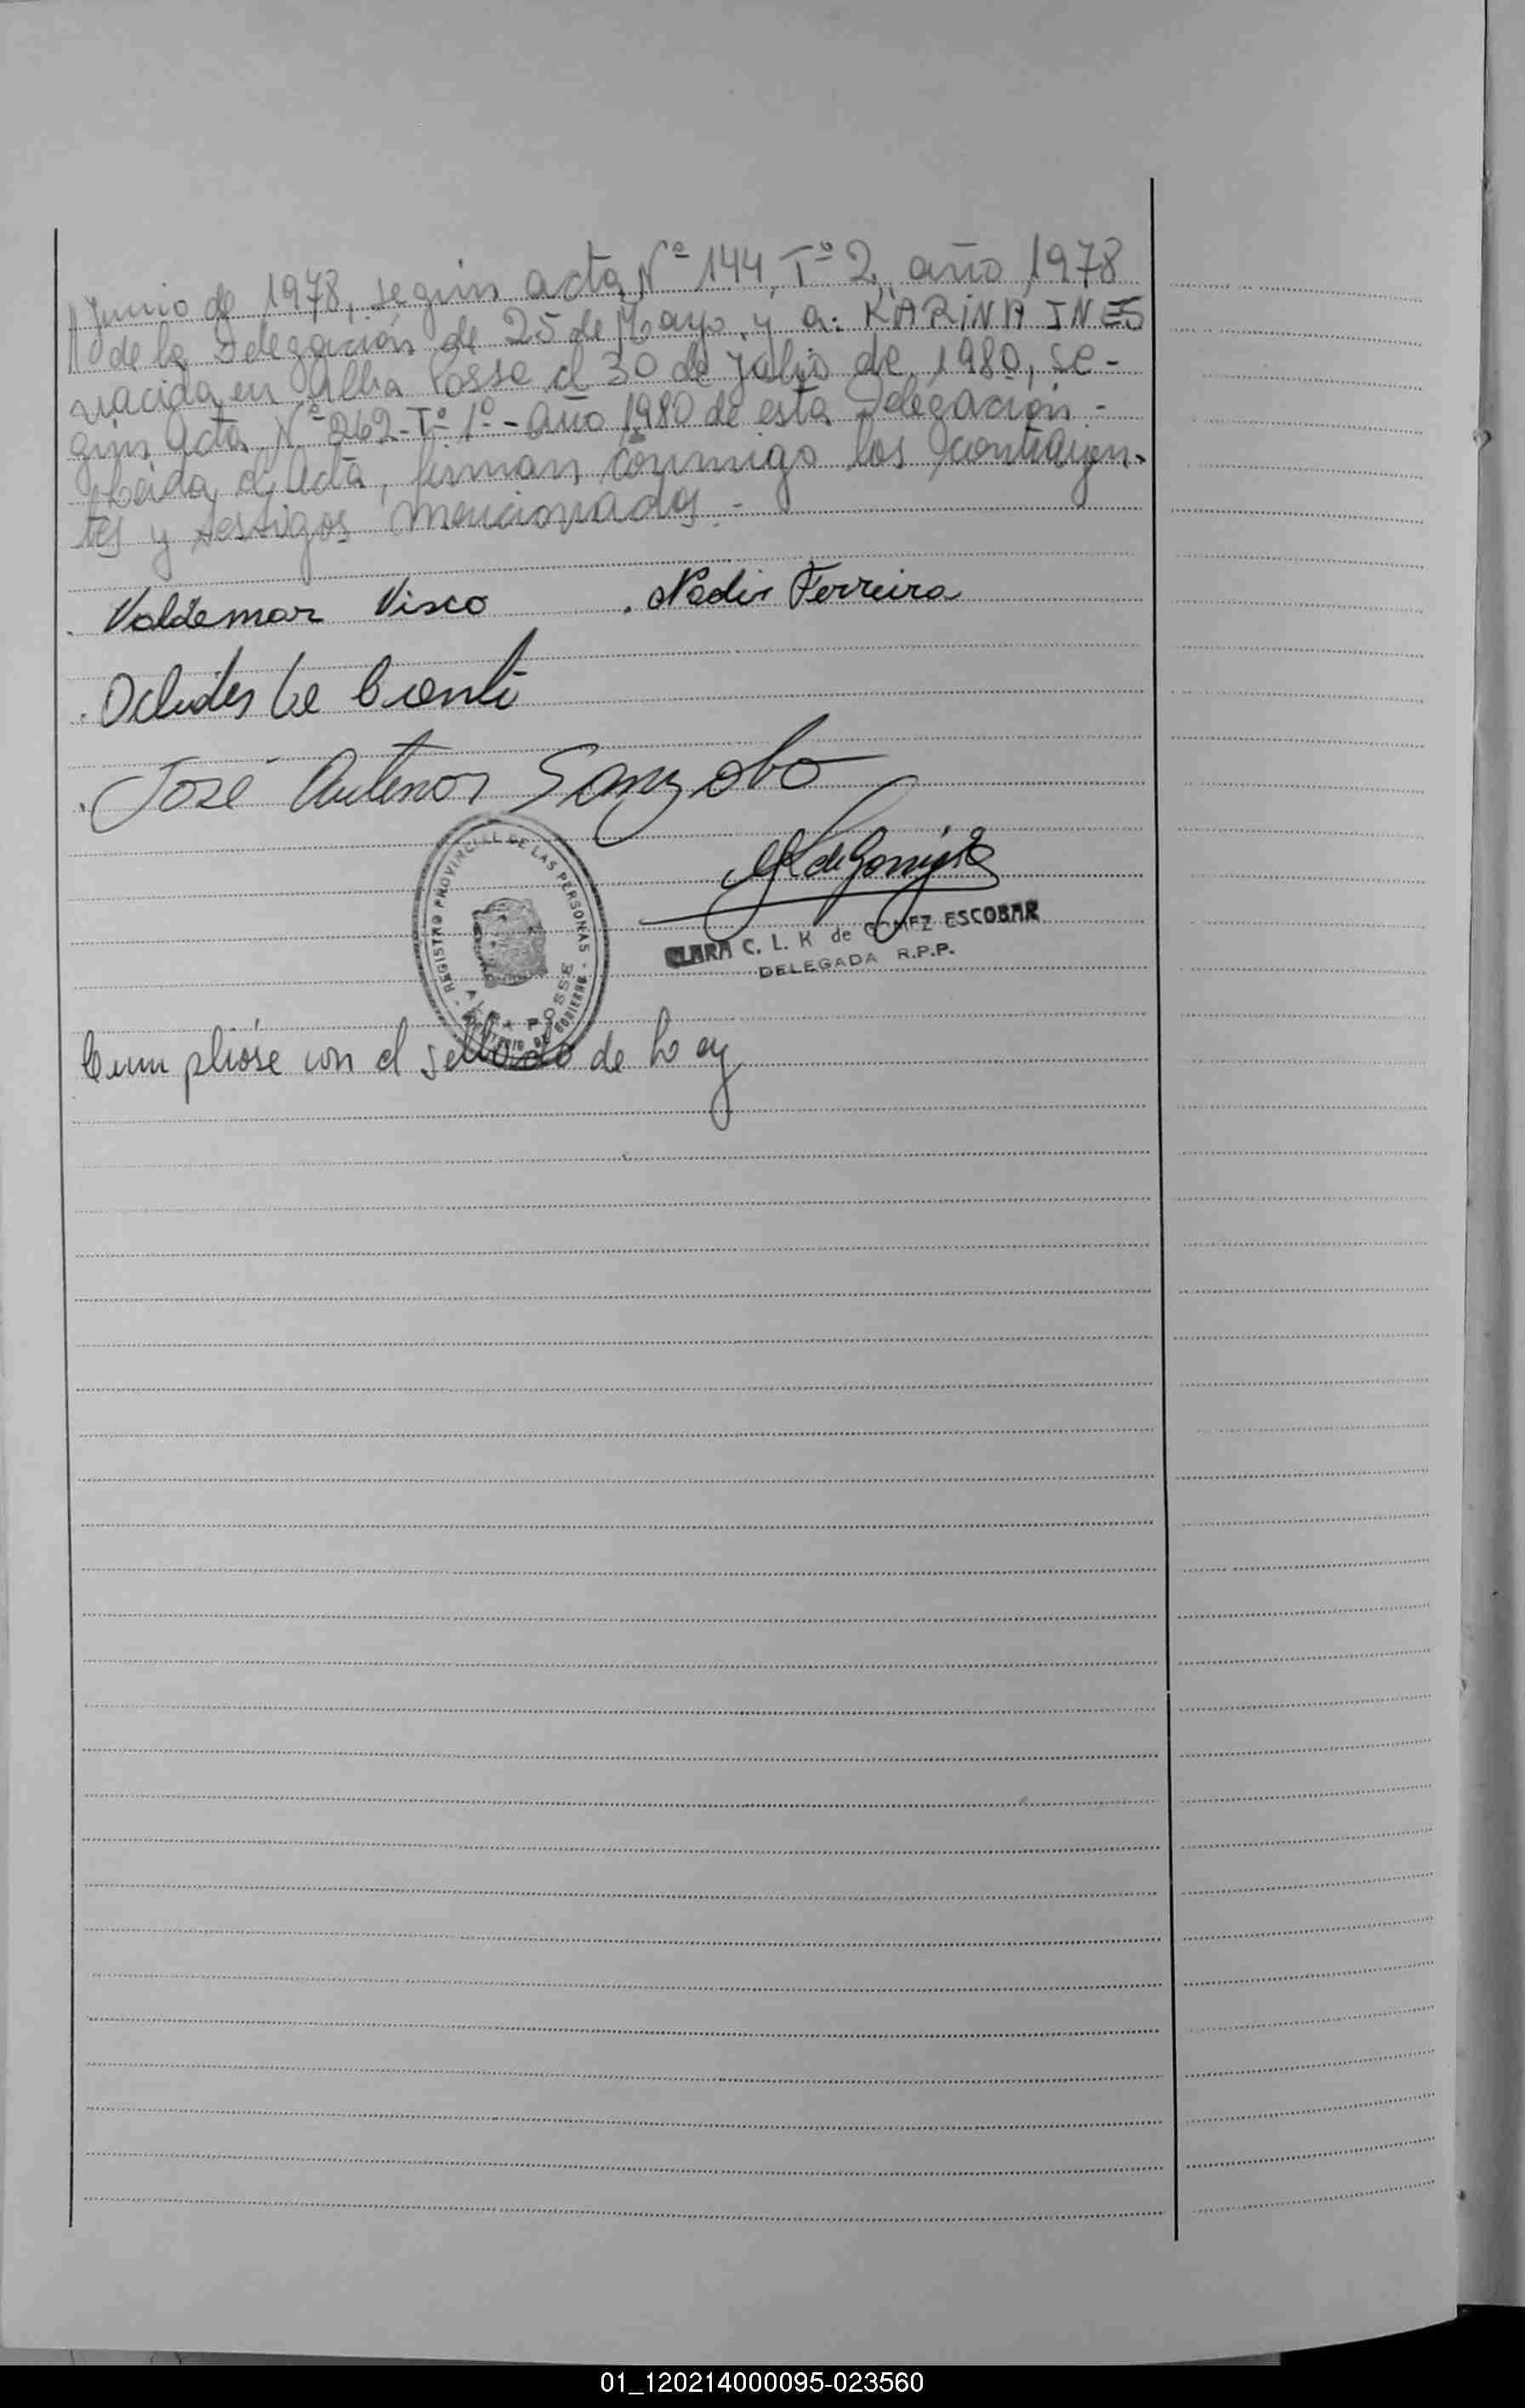 // Junio de 1978, según acta Nº 144, Tº 2, año 1978
// de la Delegación de 25 de Mayo, y a: KARINA INES
nacida en Alba Posse el 30 de Julio de 1980, se-
gún Acta Nº 262-Tº 1º-año 1980 de esta Delegación-
Leida el Acta, firman conmigo los contrayen-
tes y testigos mencionados.-
Valdemar Visco . Nadir Ferreira
. Oclides
. José Antenor
REGISTRO PROVINCIAL DE LAS PERSONAS -
ALBA POSSE
CLARA C. L. K de GOMEZ ESCOBAR
DELEGADA R.P.P.
Cumplióse con el sellado de ley
01_120214000095-023560